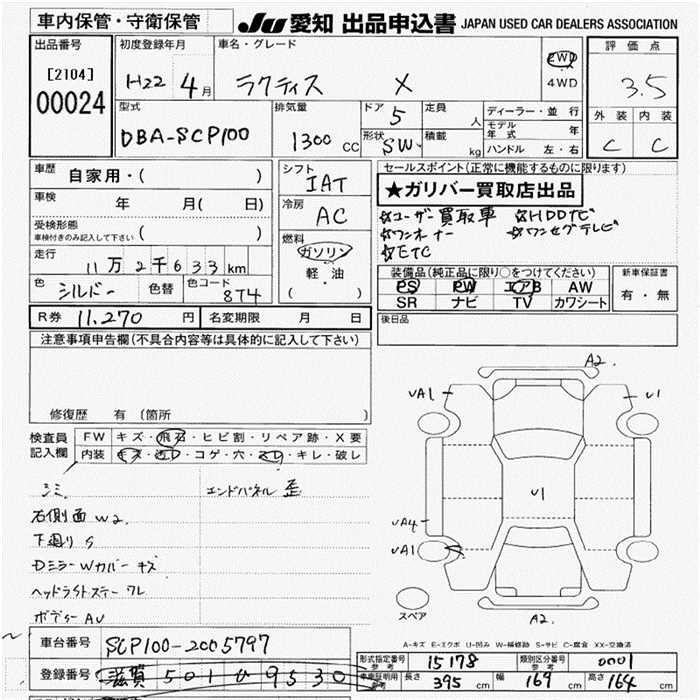 車内保管・守衛保管
JU 愛知 出品申込書 JAPAN USED CAR DEALERS ASSOCIATION
出品番号
[2104]
00024
初度登録年月
H22 4月
車名・グレード
ラクティス X
2WD
4WD
評価点
3.5
外装 内装
C C
型式
DBA-SCP100
排気量
1300 cc
ドア 5
形状 SW
定員 人
積載 kg
ディーラー・並行
モデル年式 年
ハンドル 左・右
車歴
自家用・( )
車検
年 月( 日)
受検形態
車検付きのみ記入して下さい ( )
走行
11万2千633km
色 シルバー 色替 色コード 8T4
シフト
IAT
冷房
AC
燃料
ガソリン
軽・油
( )
セールスポイント(正常に機能するものに限ります)
★ガリバー買取店出品
☆ユーザー買取車 ☆HDDナビ
☆ワンオーナー ☆ワンセグテレビ
☆ETC
装備品(純正品に限り○をつけてください)
PS PW エアB AW
SR ナビ TV カワシート
新車保証書
有・無
R券 11,270 円 名変期限 月 日
後日品
注意事項申告欄(不具合内容等は具体的に記入して下さい)
修復歴 有(箇所 )
検査員記入欄
FW キズ・飛石・ヒビ割・リペア跡・X要
内装 キズ・汚レ・コゲ・穴・スレ・キレ・破レ
エンドパネル 歪
右側面 W2
下廻り S
Dミラー Wカバー キズ
ヘッドライトステー ワレ
ボディー AU
A2
UA1
U1
U1
UA4
UA1
A2
スペア
A-キズ E-エクボ U-凹み W-補修跡 S-サビ C-腐食 XX-交換済
車台番号 SCP100-2005797
登録番号 滋賀 501 ひ 9530
形式指定番号 参考 15178 類別区分番号 参考 0001
車車証明用 参考 長さ 395 cm 幅 169 cm 高さ 164 cm